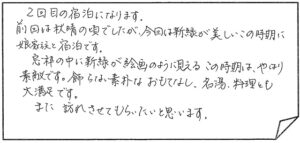 2回目の宿泊になります。
前回は秋晴の頃でしたが、今回は新緑が美しいこの時期に
娘家族と宿泊です。
窓枠の中に新緑が絵画のように見えるこの時期は、やはり
素敵です。飾らない素朴なおもてなし、名湯、料理とも
大満足です。
また訪れさせてもらいたいと思います。